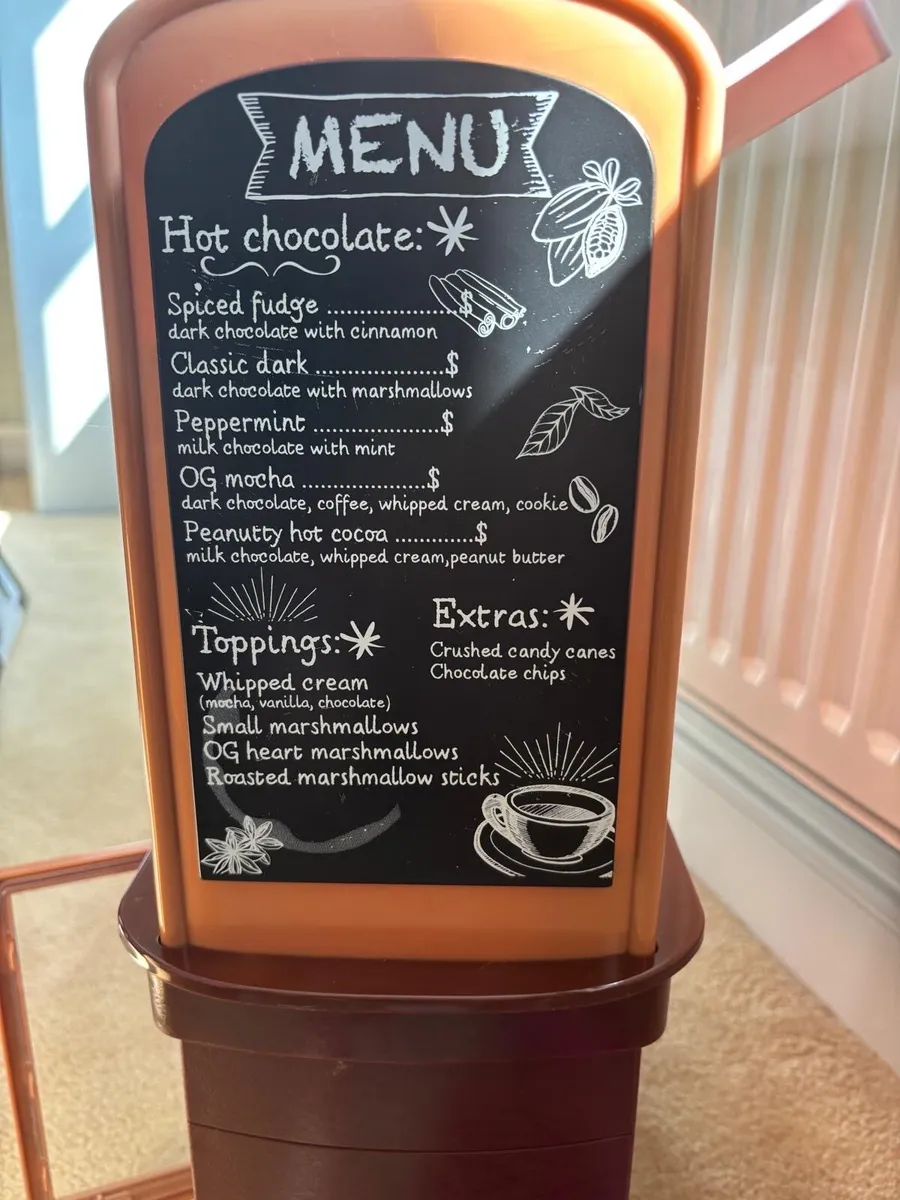 MENU
Hot chocolate:
Spiced fudge ....................$
dark chocolate with cinnamon
Classic dark ....................$
dark chocolate with marshmallows
Peppermint ....................$
milk chocolate with mint
OG mocha ....................$
dark chocolate, coffee, whipped cream, cookie
Peanutty hot cocoa ............$
milk chocolate, whipped cream,peanut butter
Toppings:
Whipped cream
(mocha, vanilla, chocolate)
Small marshmallows
OG heart marshmallows
Roasted marshmallow sticks
Extras:
Crushed candy canes
Chocolate chips